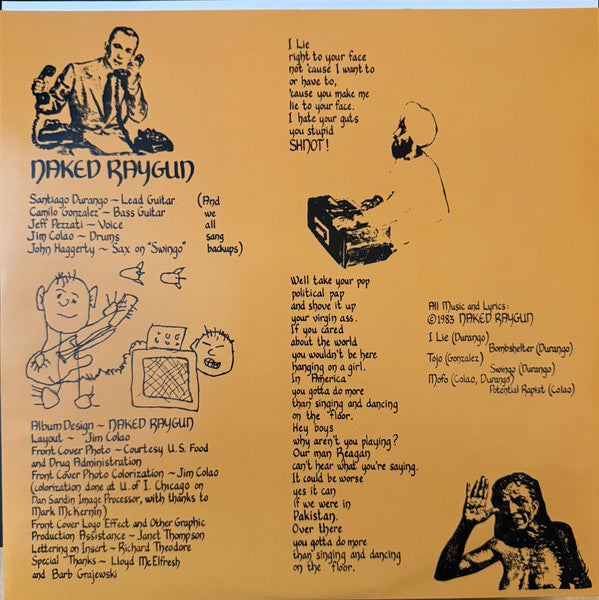 NAKED RAYGUN
Santiago Durango ~ Lead Guitar
Camilo Gonzalez ~ Bass Guitar
Jeff Pezzati ~ Voice
Jim Colao ~ Drums
John Haggerty ~ Sax on "Swingo"
(And
we
all
sang
backups)
Album Design ~ NAKED RAYGUN
Layout ~ Jim Colao
Front Cover Photo ~ Courtesy U.S. Food
and Drug Administration
Front Cover Photo Colorization ~ Jim Colao
(colorization done at U. of I. Chicago on
Dan Sandin Image Processor, with thanks to
Mark McKernin)
Front Cover Logo Effect and Other Graphic
Production Assistance ~ Janet Thompson
Lettering on Insert ~ Richard Theodore
Special Thanks ~ Lloyd McElfresh
and Barb Grajewski
I Lie
right to your face
not 'cause I want to
or have to,
'cause you make me
lie to your face.
I hate your guts
you stupid
SHNOT!
Well take your pop
political pap
and shove it up
your virgin ass.
If you cared
about the world
you wouldn't be here
hanging on a girl.
In "America"
you gotta do more
than singing and dancing
on the floor.
Hey boys
why aren't you playing?
Our man Reagan
can't hear what you're saying.
It could be worse
yes it can
if we were in
Pakistan.
Over there
you gotta do more
than singing and dancing
on the floor.
All Music and Lyrics:
©1983 NAKED RAYGUN
I Lie (Durango)
Bombshelter (Durango)
Tojo (Gonzalez)
Swingo (Durango)
Mofo (Colao, Durango)
Potential Rapist (Colao)